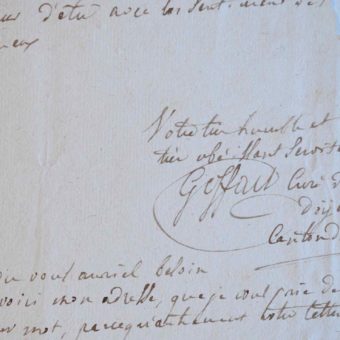 d'etre avec les sentimens de
Votre tres humble et
très obeissant Servit
Geffard Curé d
Doye
Canton d
vous auriel besoin
voici mon adresse, que je vous prie de
mot, parcequ'autrement votre lettre